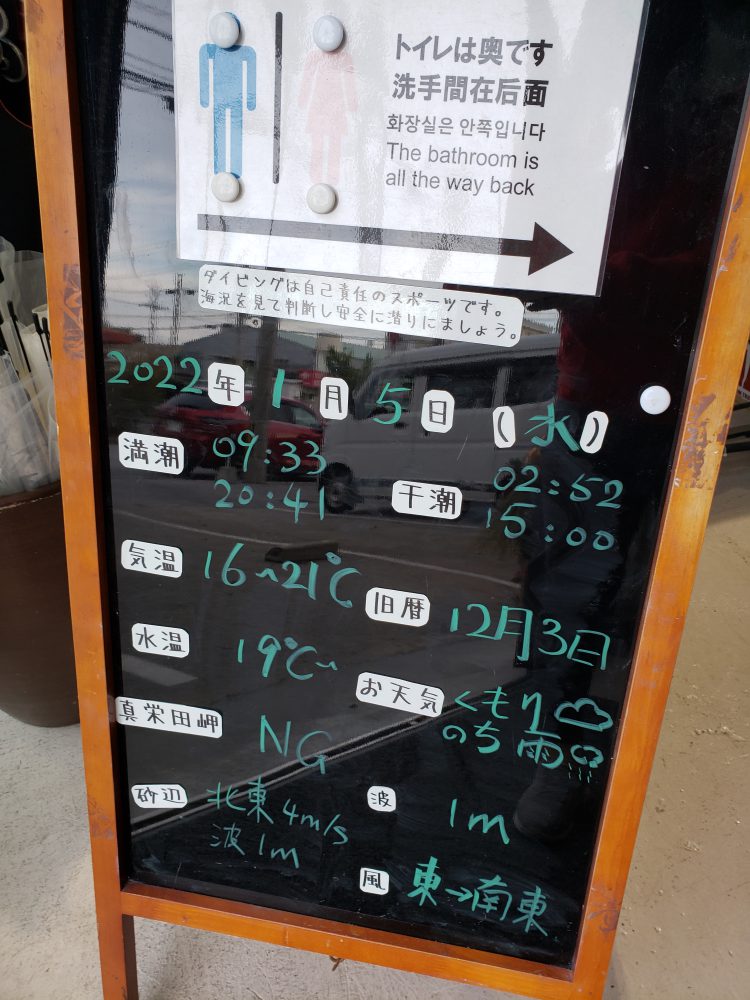 トイレは奥です
洗手間在后面
화장실은 안쪽입니다
The bathroom is
all the way back
ダイビングは自己責任のスポーツです。
海況を見て判断し安全に潜りにましょう。
2022年 1月 5日 (水)
満潮 09:33
20:41
干潮 02:52
15:00
気温 16~21℃
旧暦 12月3日
水温 19℃~
お天気 くもり
のち 雨
真栄田岬 NG
砂辺 北東 4m/s
波 1m
波 1m
風 東→南東